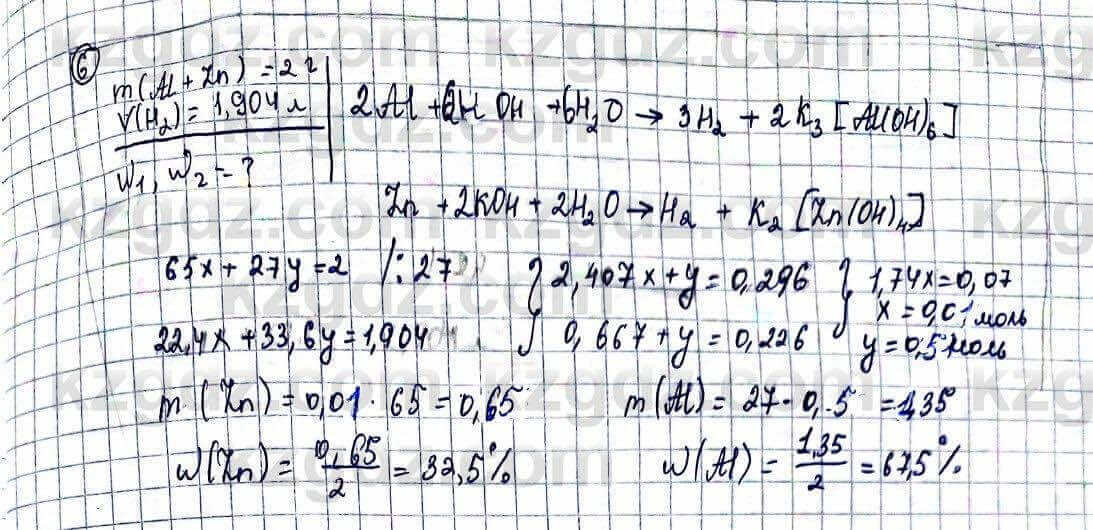 6
m(Al + Zn) = 2 г
V(H₂) = 1,904 л
W₁, W₂ = ?
2Al + 6H OH + 6H₂O → 3H₂ + 2K₃[Al(OH)₆]
Zn + 2KOH + 2H₂O → H₂ + K₂[Zn(OH)₄]
65x + 27y = 2 /: 27
22,4x + 33,6y = 1,904
{ 2,407x + y = 0,296
0,667 + y = 0,226
{ 1,74x = 0,07
x = 0,01 моль
y = 0,5 моль
m(Zn) = 0,01 · 65 = 0,65
m(Al) = 27 · 0,.5 = 1,35
W(Zn) = 0,65/2 = 32,5%
W(Al) = 1,35/2 = 67,5%
kzgdz.com